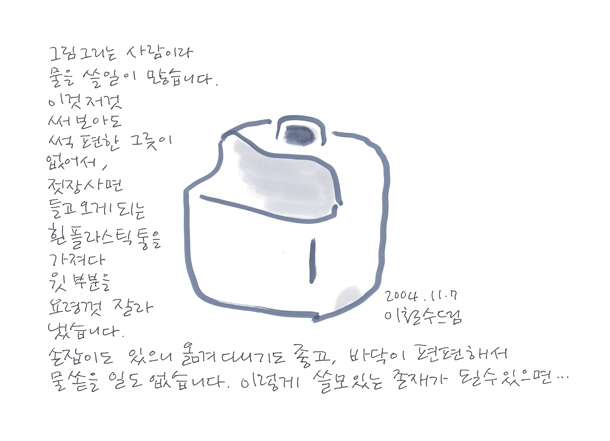 그림그리는 사람이라
물을 쓸일이 많습니다.
이것저것
써보아도
썩 편한 그릇이
없어서,
젓장사면
들고오게되는
흰플라스틱통을
가져다
윗부분을
요령껏 잘라
냈습니다.
손잡이도 있으니 옮겨다니기도 좋고, 바닥이 편편해서
물쏟을 일도 없습니다. 이렇게 쓸모있는 존재가 될수있으면...
2004.11.7
이철수드림